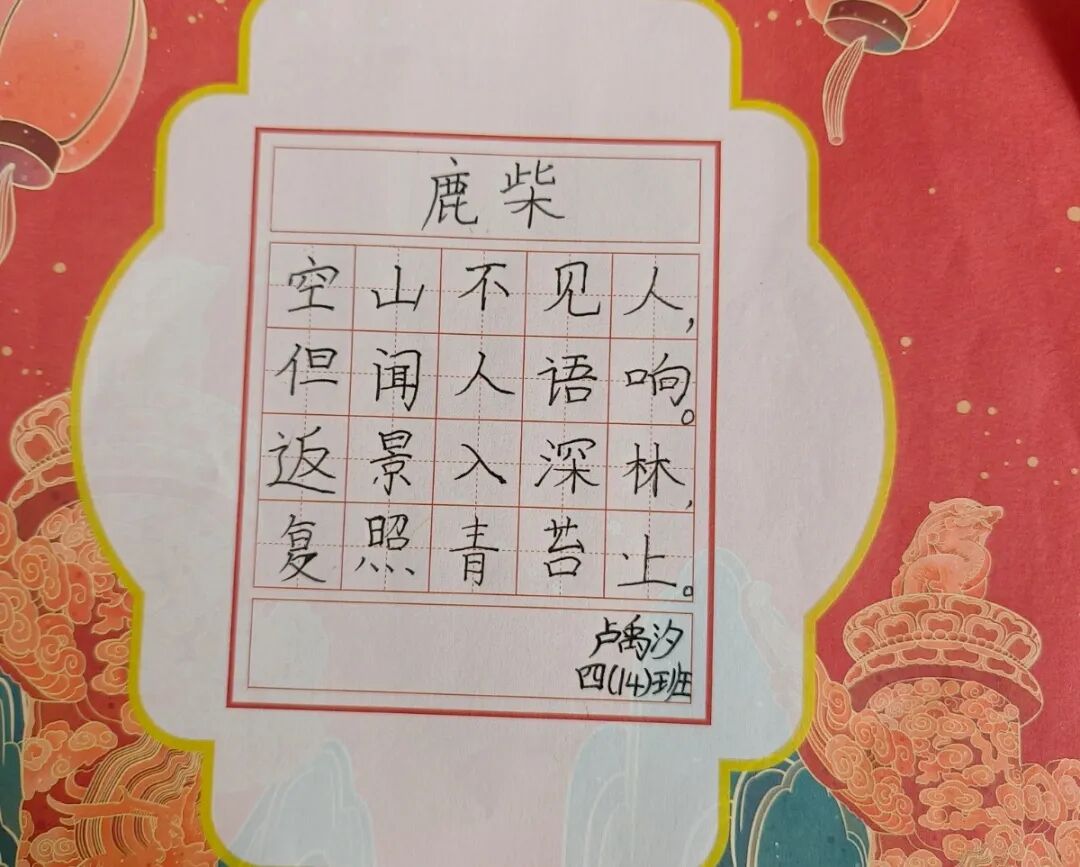 鹿柴
空山不见人,
但闻人语响。
返景入深林,
复照青苔上。
卢禹汐
四(14)班